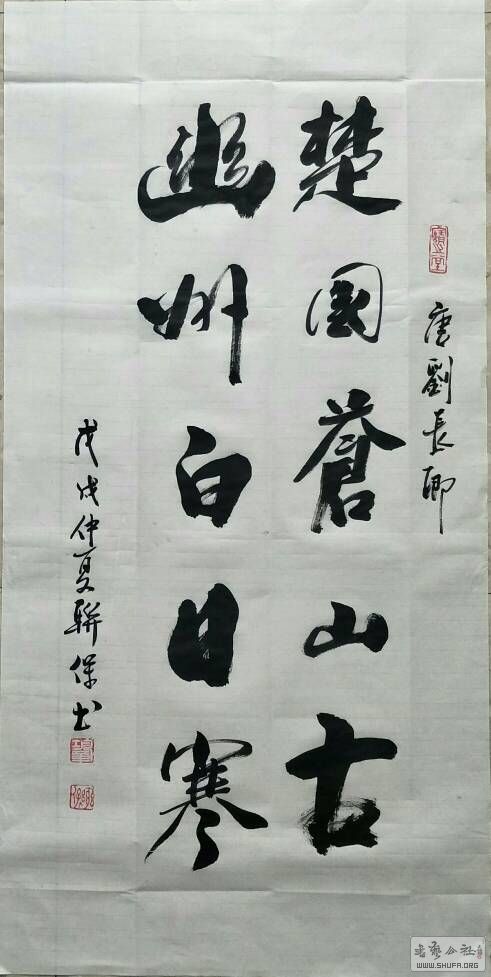 唐劉長卿
楚國蒼山古
幽州白日寒
戊戌仲夏聯保书
书艺公社
WWW.SHUFA.ORG